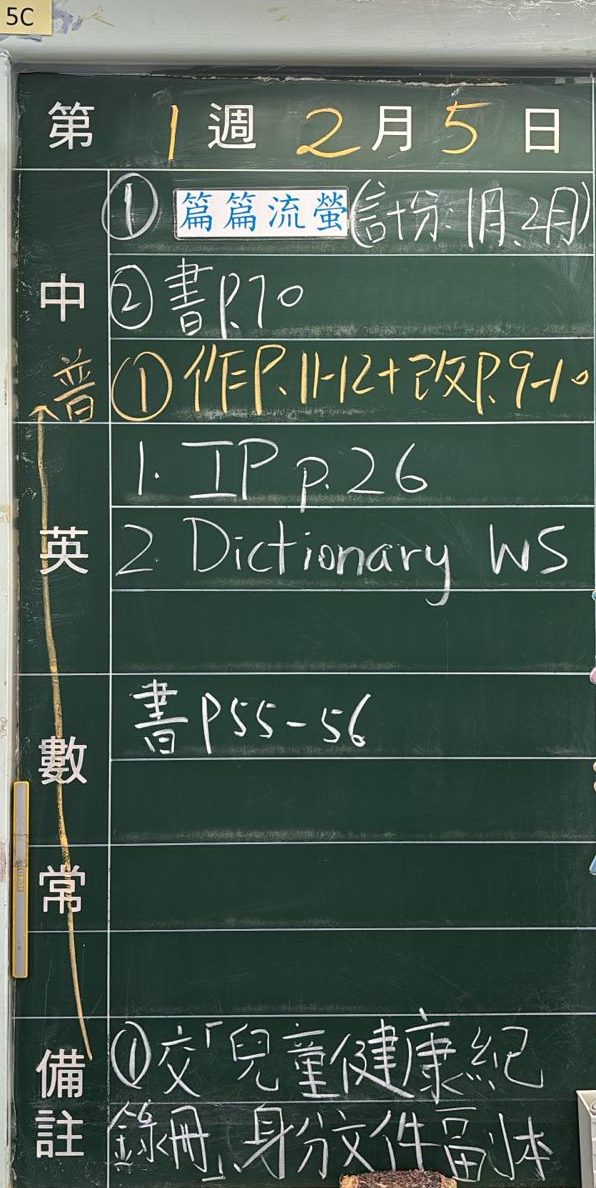 5C
第 1 週 2 月 5 日
中
① 篇篇流螢(計分:1月、2月)
② 書P.70
普 ① 作P.11-12+改P.9-10
英
1. IP p.26
2 Dictionary WS
數
書P55-56
常
備註
①交「兒童健康紀
錄冊」、身分文件副本